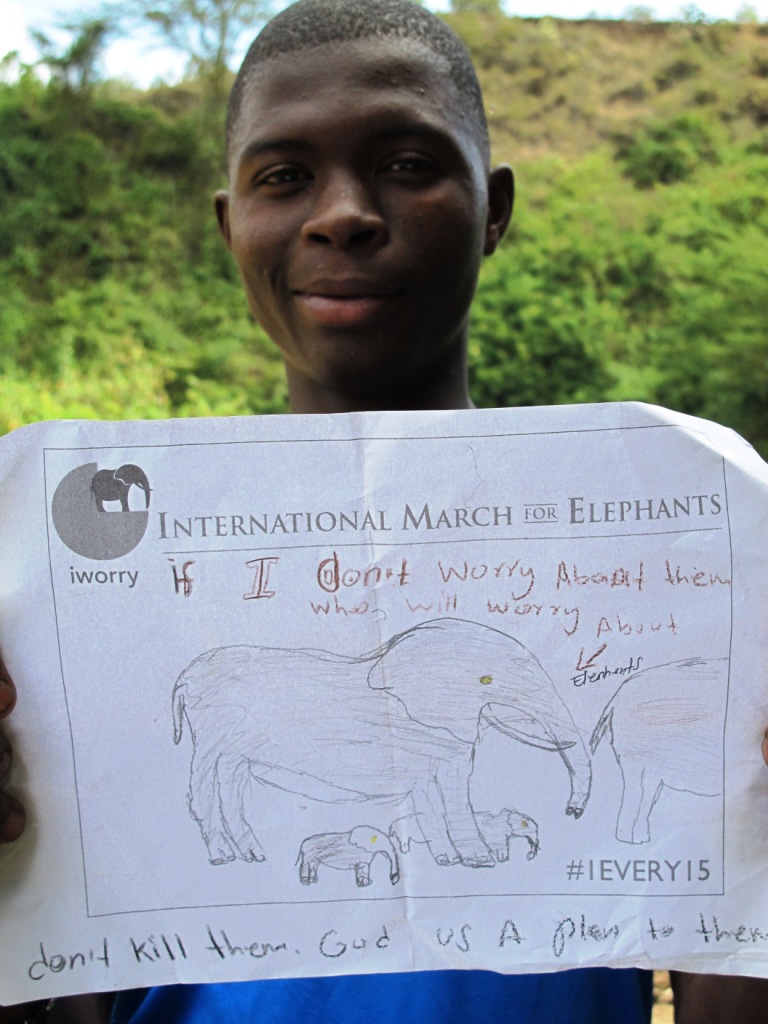 iworry
INTERNATIONAL MARCH FOR ELEPHANTS
if I don't worry About them
who, will worry About
Elephants
#1EVERY15
don't kill them. God us A plan to them